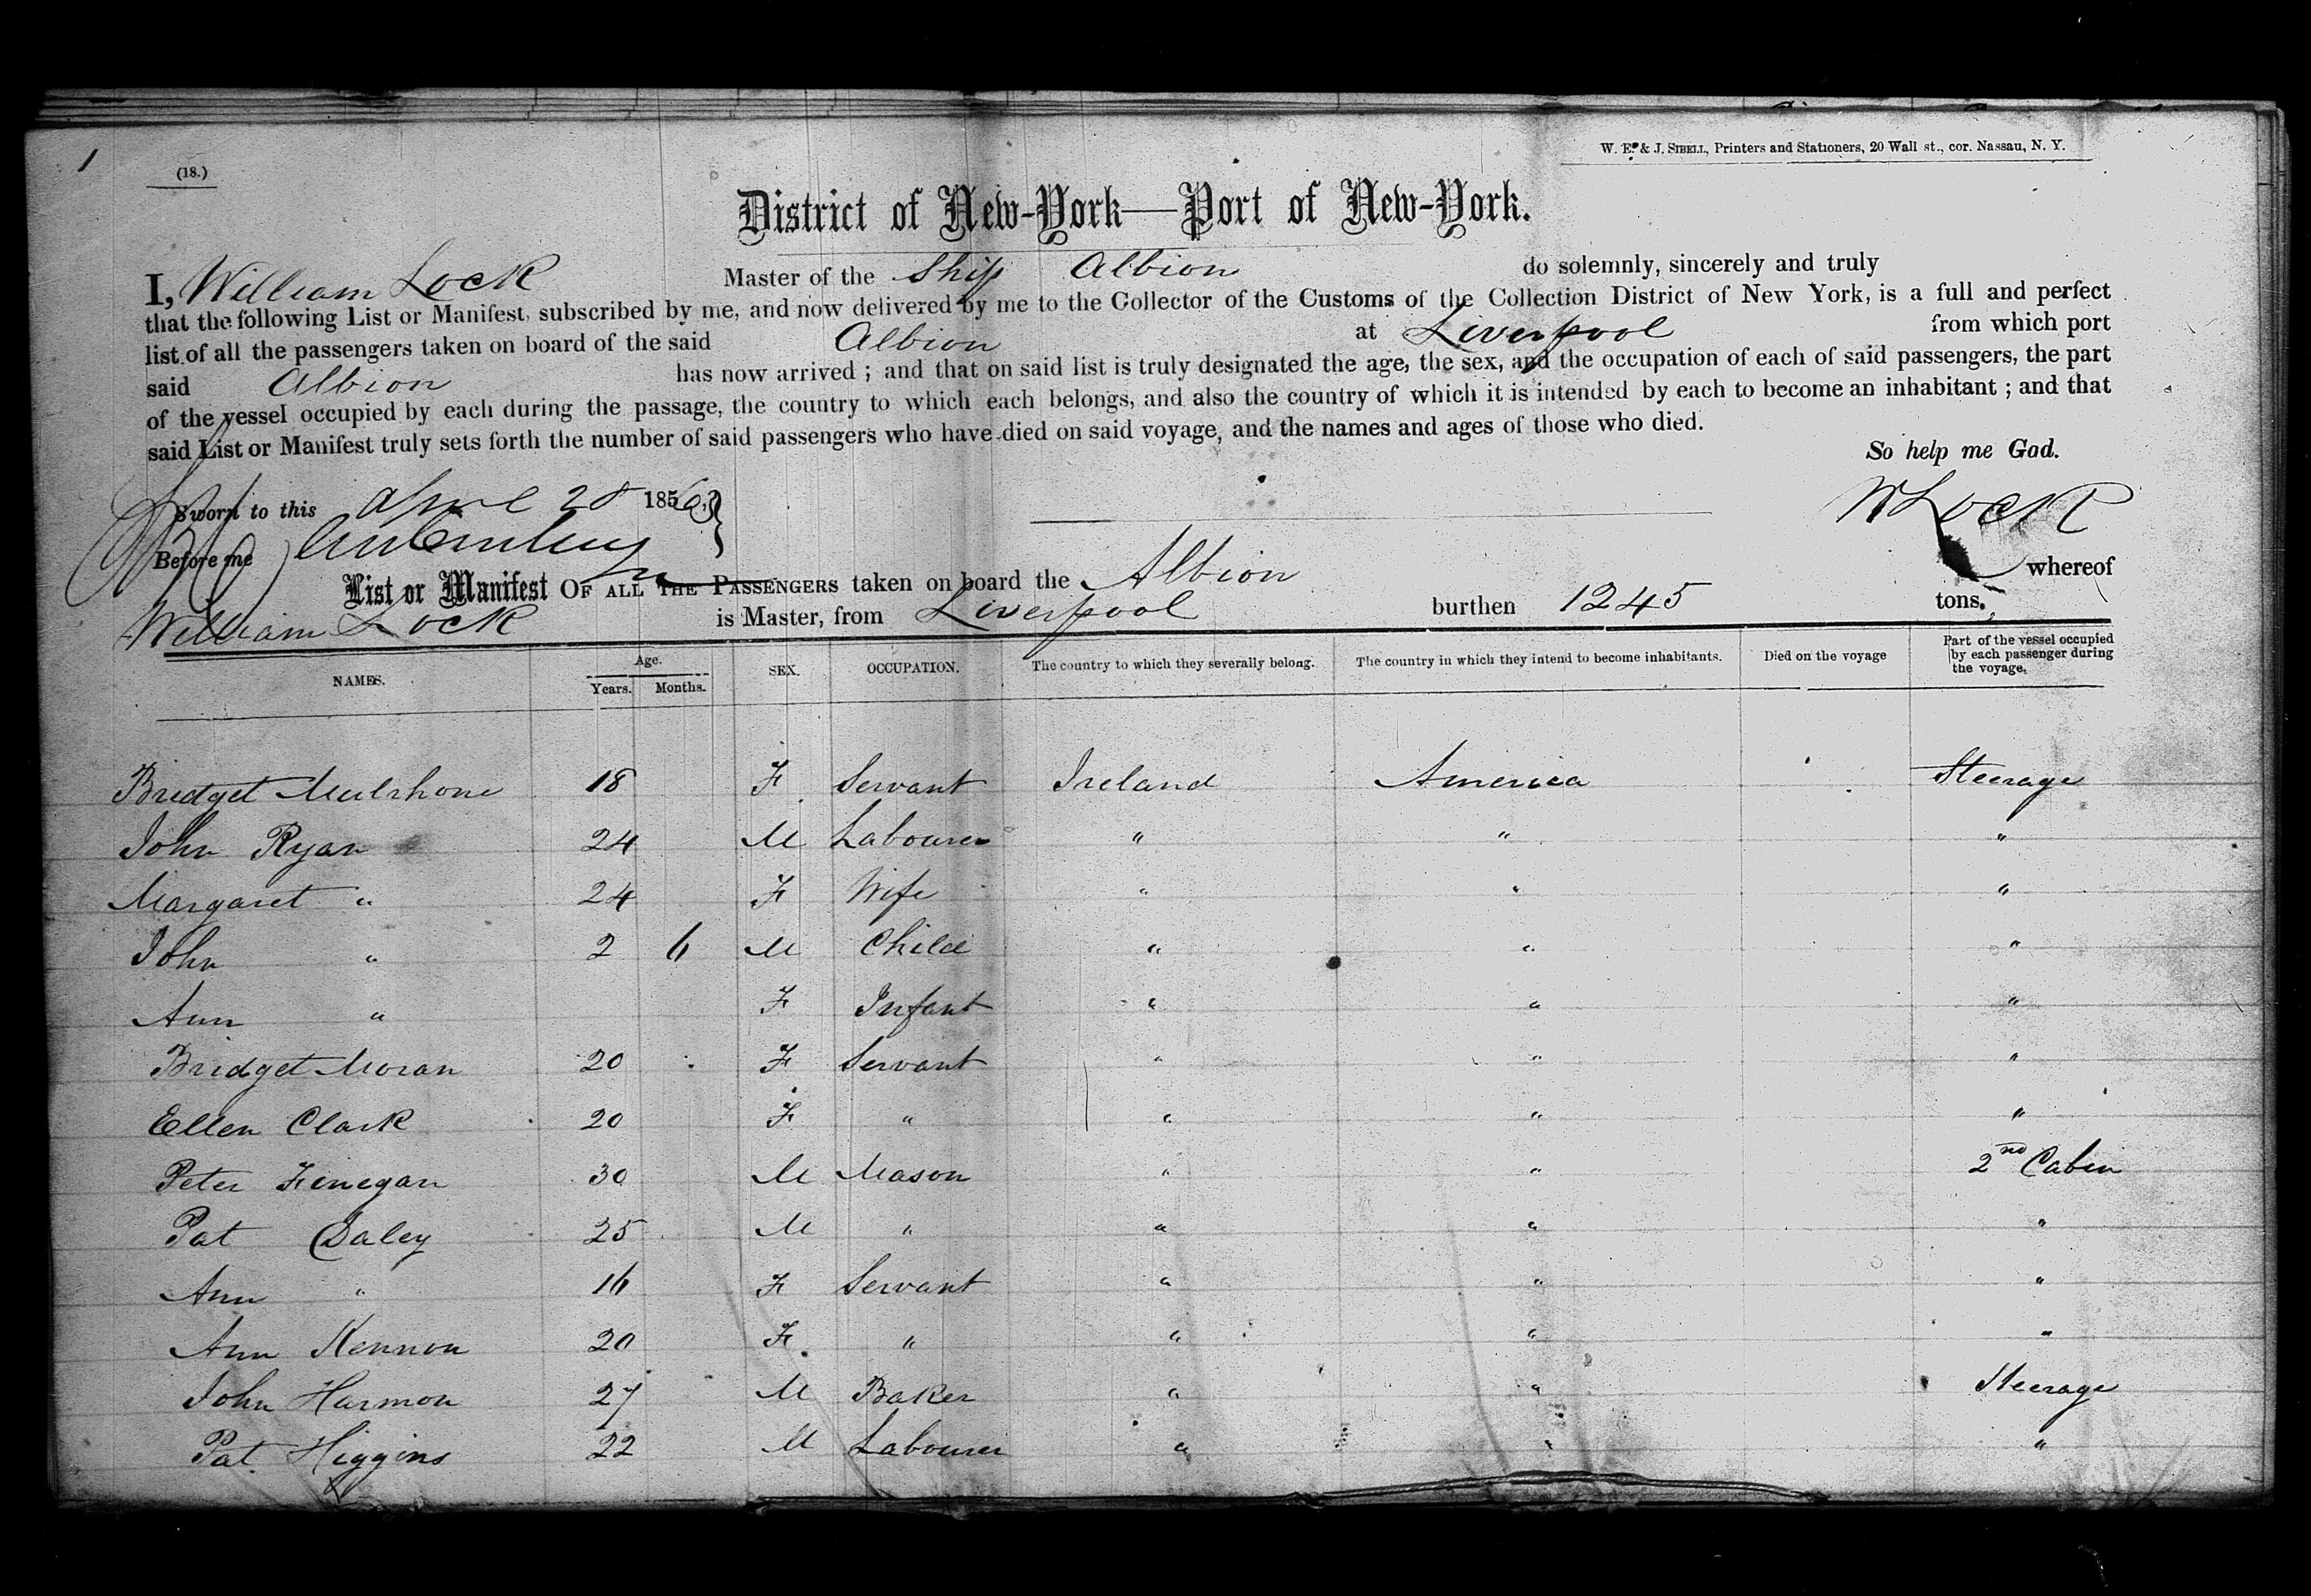 1
(18.)
W. E. & J. SIBELL, Printers and Stationers, 20 Wall st., cor. Nassau, N. Y.
District of New-York—Port of New-York.
I, William Lock Master of the Ship Albion do solemnly, sincerely and truly
that the following List or Manifest, subscribed by me, and now delivered by me to the Collector of the Customs of the Collection District of New York, is a full and perfect
list of all the passengers taken on board of the said Albion at Liverpool from which port
said Albion has now arrived ; and that on said list is truly designated the age, the sex, and the occupation of each of said passengers, the part
of the vessel occupied by each during the passage, the country to which each belongs, and also the country of which it is intended by each to become an inhabitant ; and that
said List or Manifest truly sets forth the number of said passengers who have died on said voyage, and the names and ages of those who died.
So help me God.
Sworn to this April 28 1856
W Lock
Before me
List or Manifest OF ALL THE PASSENGERS taken on board the Albion whereof
William Lock is Master, from Liverpool burthen 1245 tons.
NAMES. Age. Years. Months. SEX. OCCUPATION. The country to which they severally belong. The country in which they intend to become inhabitants. Died on the voyage Part of the vessel occupied by each passenger during the voyage.
Bridget Mulrhone 18 F Servant Ireland America Steerage
John Ryan 24 M Labourer " " "
Margaret " 24 F Wife " " "
John " 2 6 M Child " " "
Ann " F Infant " " "
Bridget Moran 20 F Servant " " "
Ellen Clark 20 F " " " "
Peter Finegan 30 M Mason " " 2nd Cabin
Pat Daley 25 M " " " "
Ann " 16 F Servant " " "
Ann Kennon 20 F " " " "
John Harmon 27 M Baker " " Steerage
Pat Higgins 22 M Labourer " " "